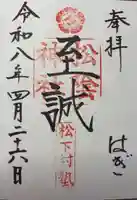 奉拝
はぎ
至誠
松陰神社
松下村塾
令和八年四月二十六日